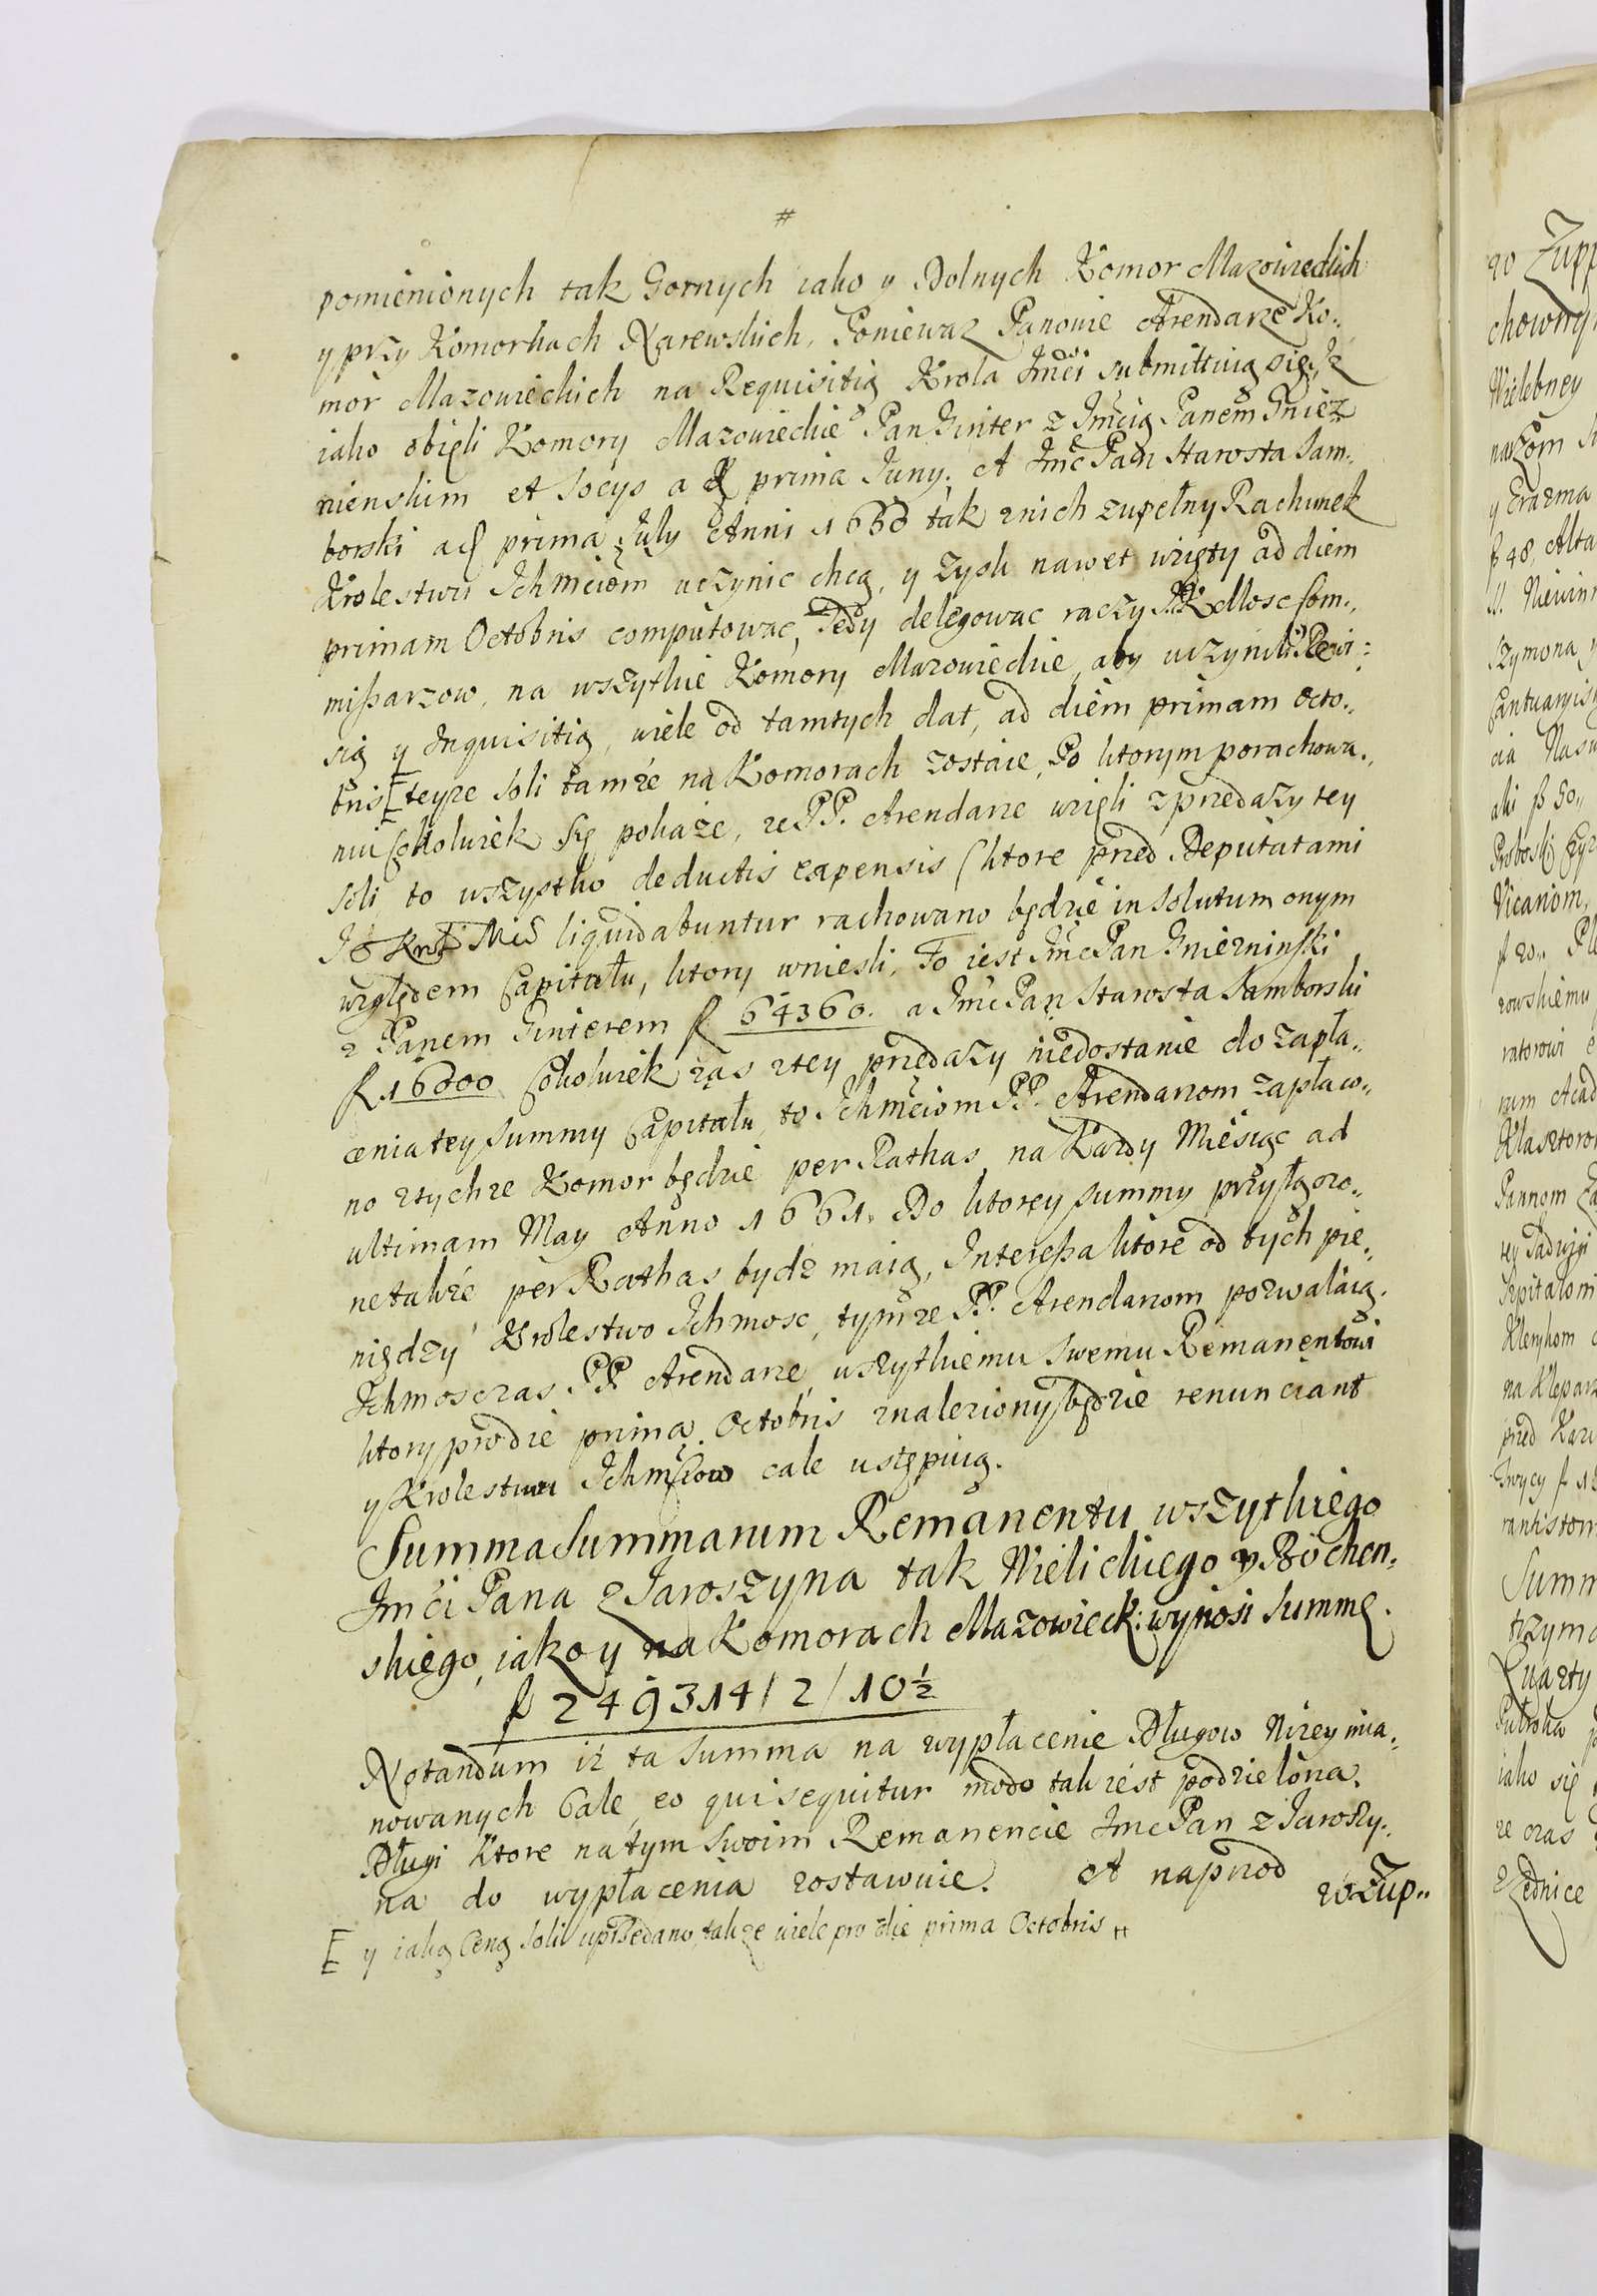 #
pomienionych tak Gornych iako y Dolnych Komor Mazowieckich
y przy Komorkach Narewskich, Poniewaz Panowie Arendarze Ko„
mor Mazowieckich na Requisitią Krola Jmći submittuią się, Iż
iako obięli Komory Mazowieckie Pan Ginter z Jmćią Panem Gniez
nienskim et Socys a prima Juny. A Jmć Pan Starosta Sam„
borski a prima July Anni 1660 tak znich zupełny Rachunek
Krolestwu Ichmćiom uczynic chcą, y zysk nawet wzięty ad diem
primam Octobris computowac, Tedy delegowac raczy J.K.Mosc Com„
missarzow, na wszytkie Komory Mazowieckie, aby uczynili Rewi:
sią y Inquisitią, wiele od tamtych dat, ad diem primam Octo„
bris [teyze soli tamże na Komorach zostaie, Po ktorym porachowa„
niu Cokolwiek się pokaże, ze PP. Arendarze wzięli z przedazy tey
soli, to wszystko deductis expensis (ktore przed Deputatami
Krol Mći liquidabuntur rachowano będzie in solutum onym
względem Capitału, ktory wniesli, To iest Jmć Pan Gniezninski
z Panem Ginterem f 64360. a Jmć Pan Starosta Samborski
f 16000 Cokolwiek zas ztey przedazy niedostanie do zapła„
cenia tey Summy Capitału, to Ichmćiom PP. Arendarzom zapłaco„
no ztychze Komor będzie per Rathas na Kazdy Miesiąc ad
ultimam May Anno 1661. Do ktorey Summy przyłączo„
ne takze per Rathas bydz maią, Interessa ktore od tych pie„
niędzy Krolestwo Ichmosc, tymze PP. Arendarzom pozwalaią.
Ichmosc zas PP Arendarze, wszytkiemu swemu Remanentowi
ktory pro die prima Octobris znaleziony będzie renunciant
y Krolestwu Ichmćiow cale ustępuią.
Summa Summarum Remanentu wszytkiego
Jmći Pana z Jaroszyna tak Wielickiego y Bochen„
skiego, iako y na Komorach Mazowieck: wynosi Summę.
f 249314/2/10½
Notandum iż ta Summa na wypłacenie Długow Niżey mia„
nowanych Cale, eo qui sequitur modo tak iest podzielona.
Długi Ktore na tym swoim Remanencie Jmć Pan z Jaroszy„
na do wypłacenia zostawuie. A naprzod
20 Zup„
[ y iaką Ceną Soli uprzedano, takze wiele pro die prima Octobris #